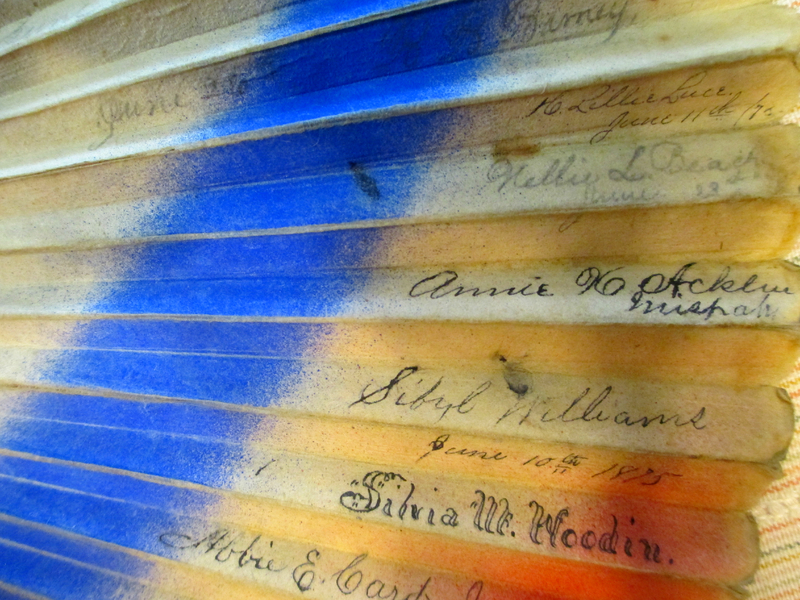 June
H. Lillie Luce.
June 11th
Nellie L.
June 23
Annie H Acklin
Mispah
Sibyl Williams
June 10th 1875
Silvia M. Woodin.
Abbie E. Card